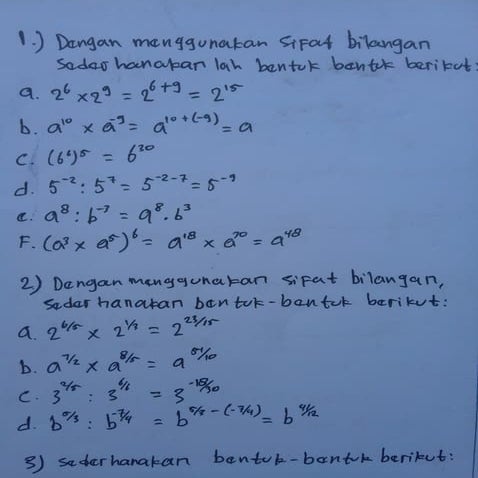 1.) Dengan menggunakan sifat bilangan
sederhanakan lah bentuk bentuk berikut:
a. 2⁶ × 2⁹ = 2⁶⁺⁹ = 2¹⁵
b. a¹⁰ × a⁻⁹ = a¹⁰⁺⁽⁻⁹⁾ = a
c. (6⁶)⁵ = 6³⁰
d. 5⁻² : 5⁷ = 5⁻²⁻⁷ = 5⁻⁹
e. a⁸ : b⁻³ = a⁸ . b³
F. (a³ × a⁵)⁶ = a¹⁸ × a³⁰ = a⁴⁸
2) Dengan menggunakan sifat bilangan,
sederhanakan bentuk-bentuk berikut:
a. 2^6/5 × 2^1/3 = 2^23/15
b. a^7/2 × a^8/5 = a^51/10
c. 3^2/5 : 3^6/6 = 3^-18/30
d. b^5/3 : b^-7/4 = b^5/3 - (-7/4) = b^41/12
3) sederhanakan bentuk-bentuk berikut: